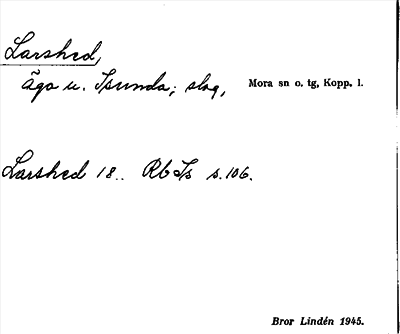 Larshed,
äga u. Isunda; slog, Mora sn o. tg, Kopp. l.
Larshed 18.. Rb Is s. 106.
Bror Lindén 1945.